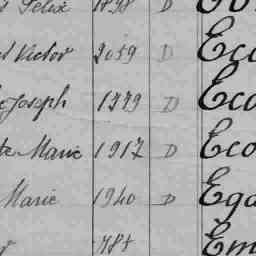 Félix 1838 D
Victor 2059 D Ec
Joseph 1779 D Eco
Marie 1917 D Eco
Marie 1940 D Ega
784 Em